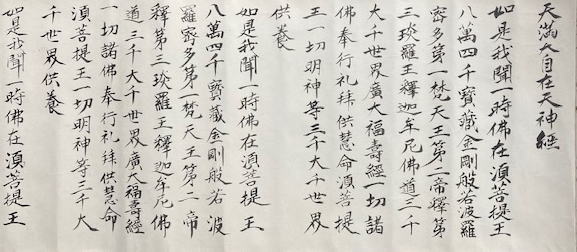 天満大自在天神経
如是我聞一時佛在湏菩提王
八萬四千寳藏金剛般若波羅
密多第一梵天王第二帝釋第
三琰羅王釋迦牟尼佛道三千
大千世界廣大福壽経一切諸
佛奉行礼拜供慧命湏菩提
王一切明神等三千大千世界
供養
如是我聞一時佛在湏菩提王
八萬四千寳藏金剛般若波
羅密多第一梵天王第二帝
釋第三琰羅王釋迦牟尼佛
道三千大千世界廣大福壽経
一切諸佛奉行礼拜供慧命
湏菩提王一切明神等三千大
千世界供養
如是我聞一時佛在湏菩提王